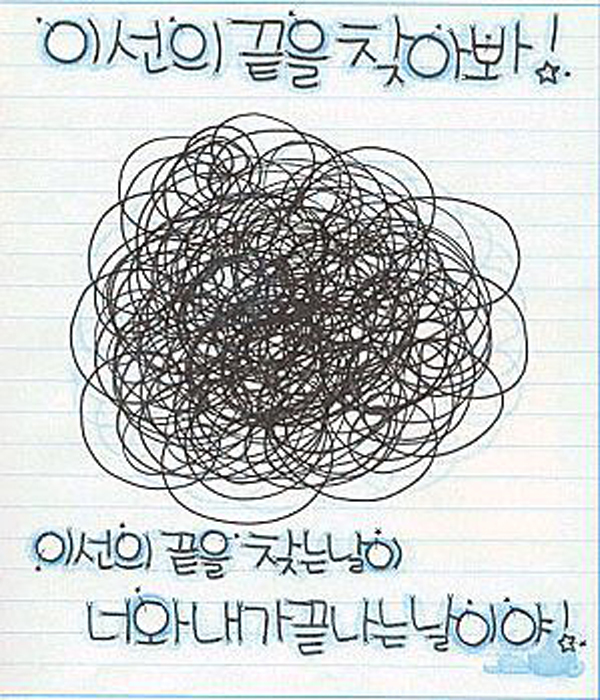 이선의 끝을 찾아봐!
이선의 끝을 찾는날이
너와내가끝나는날이야!